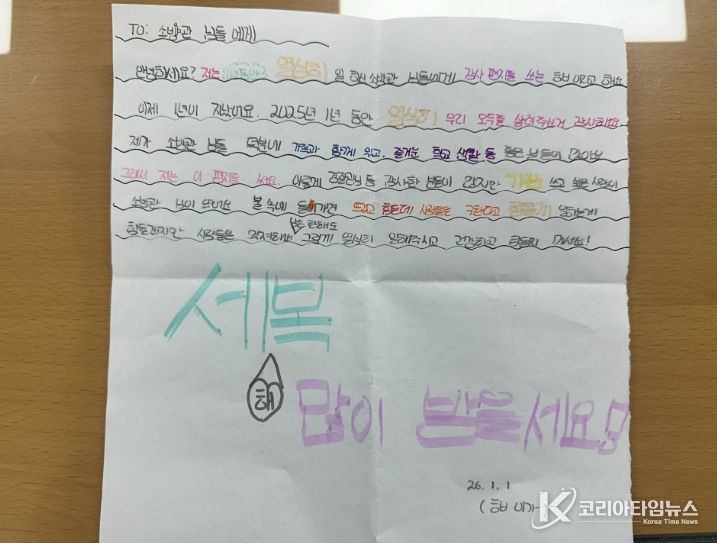 TO: 소방관 님들에게
안녕하세요? 저는 열심히 일 하신 소방관 님들에게 감사 편지를 쓰는 라고 해요.
이제 1년이 지났어요. 2025년 1년 동안 열심히 우리 모두를 살려주셔서 감사해요.
제가 소방관 님들 덕분에 가족과 함께 있고, 즐거운 학교 생활 등 좋은 날들이 많아요
그래서 저는 이 편지를 써요. 이렇게 경찰관님 등 감사한 분들이 많지만 가장 쓰고 싶은 사람이
소방관 님이 뜨거운 불 속에 들어가면 뜨겁고 힘든데 사람들을 구하려고
힘들겠지만 사람들을 열심히 일해주시고 건강하고 마세요!
새복
해
많이 받으세요!
26.1.1
코리아타임뉴스
Korea Time News